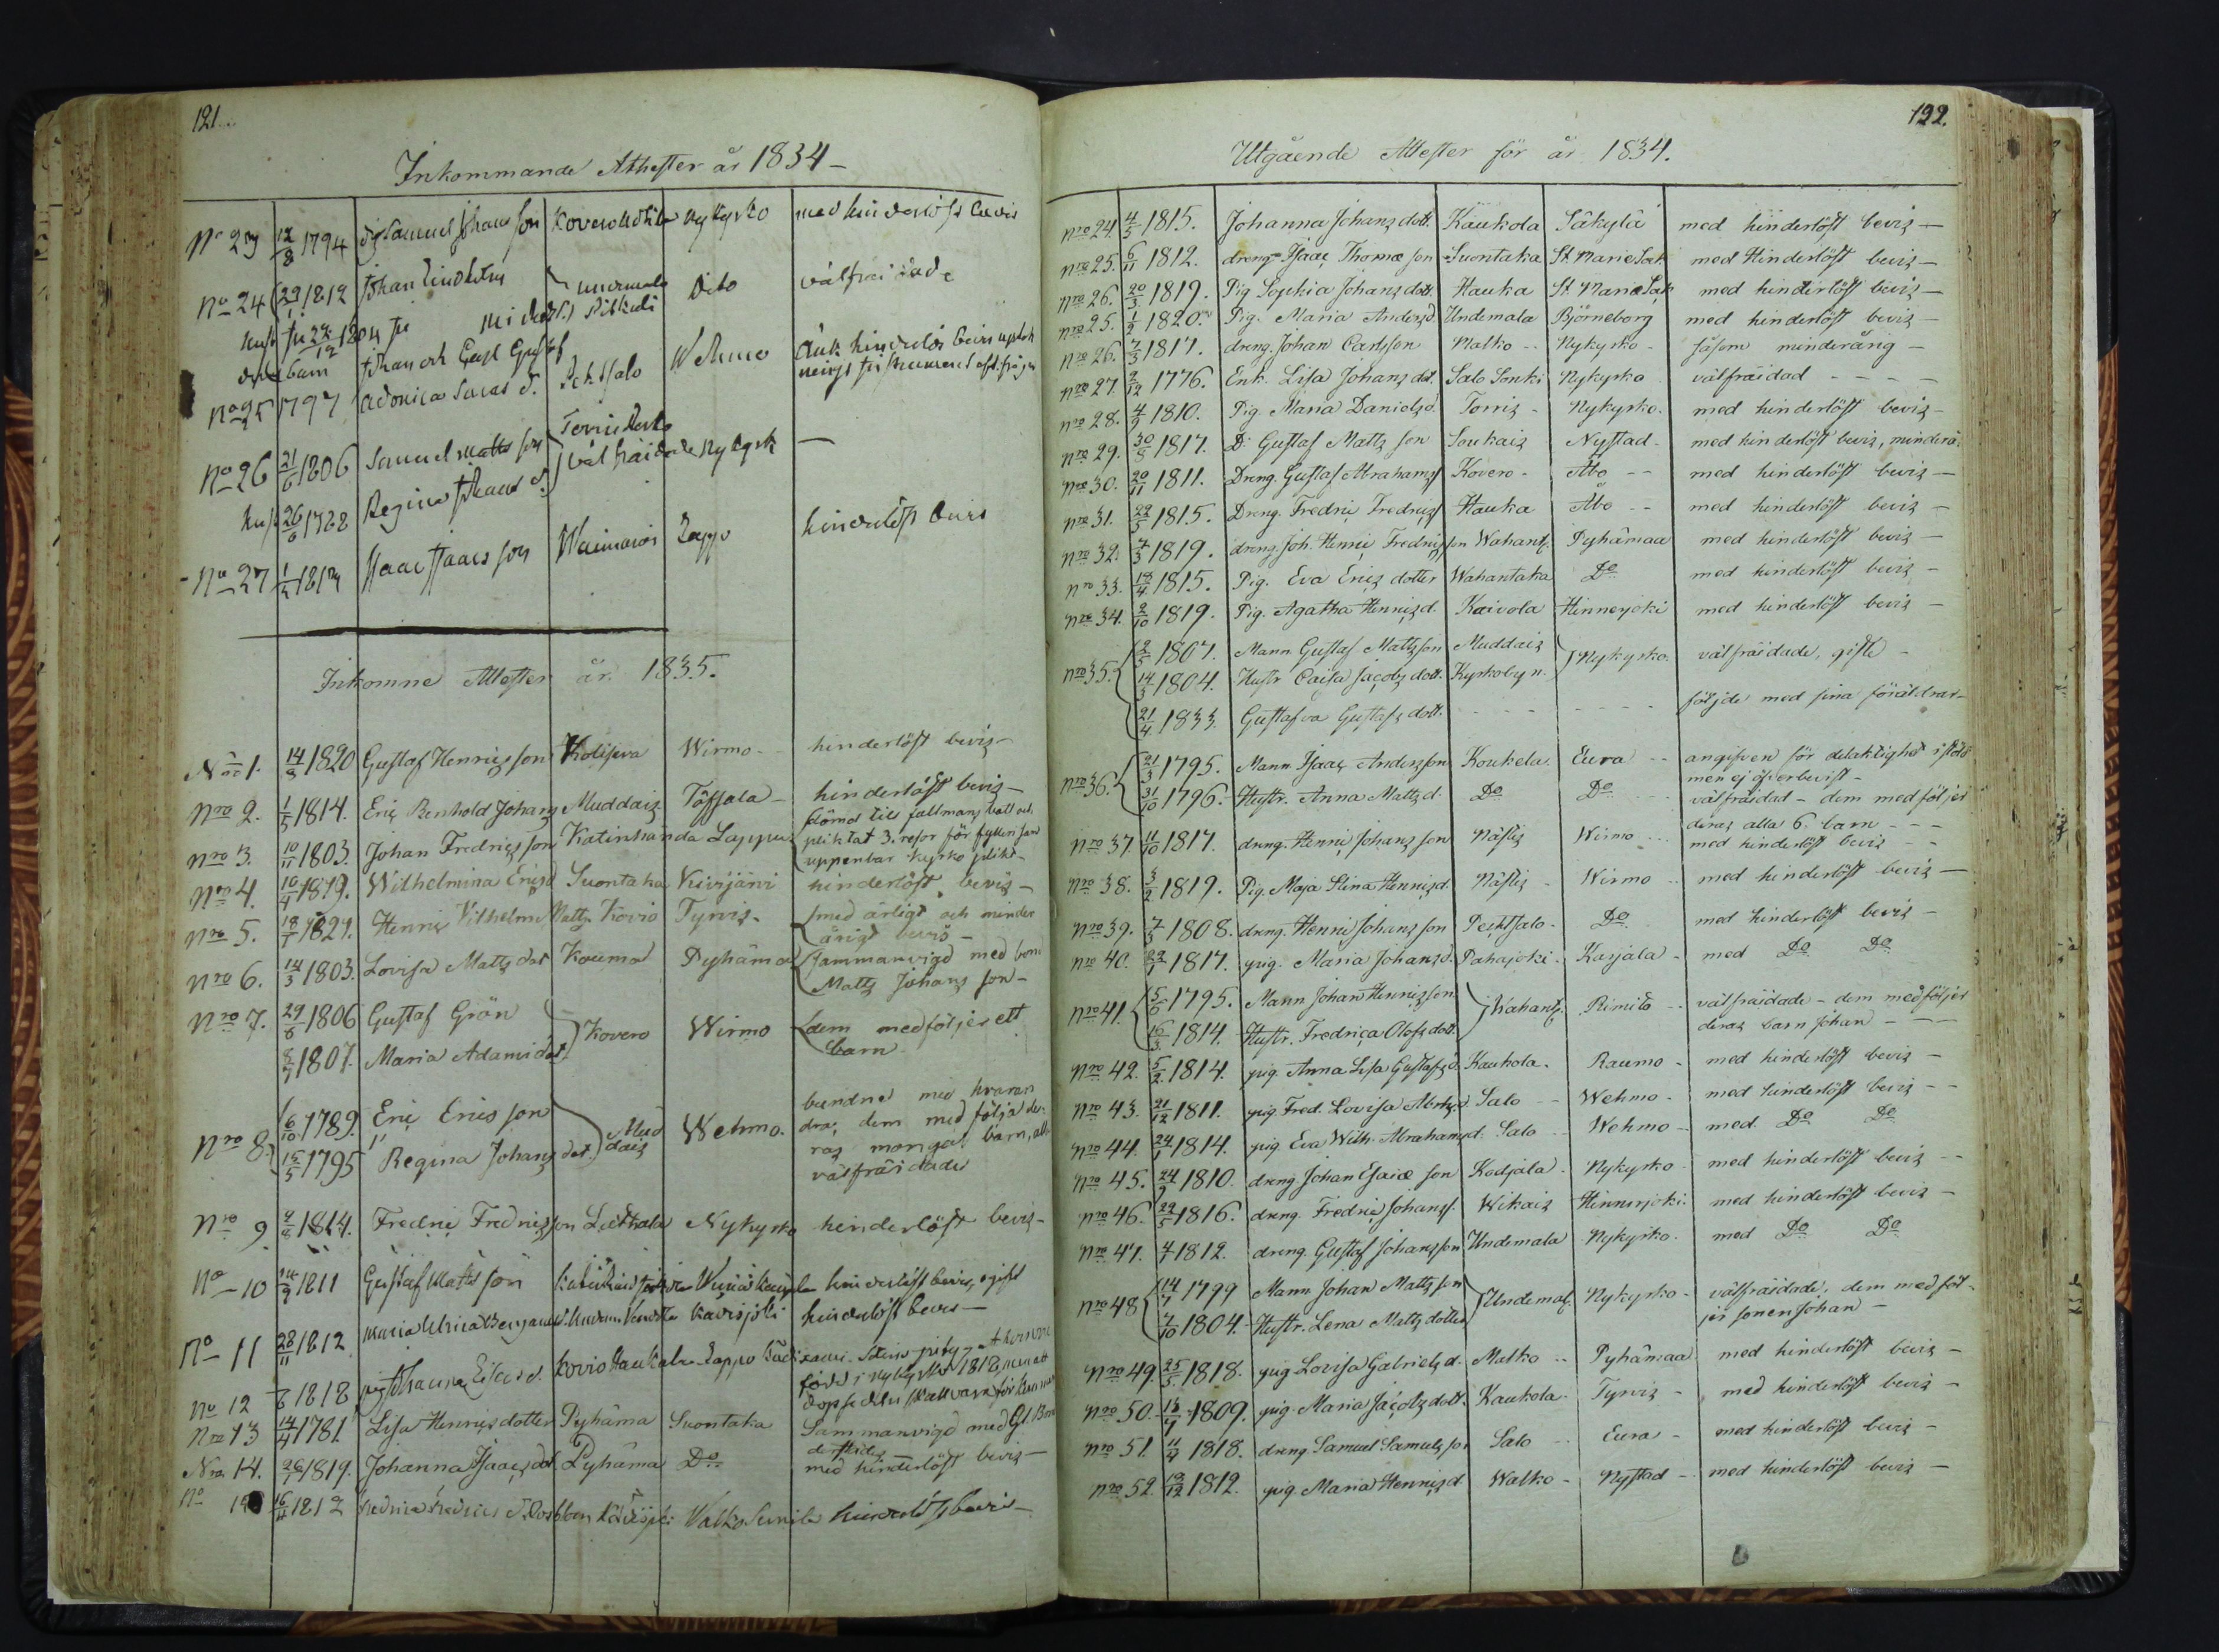 121.
Inkommande Attester år 1834 -
No 23 12/8 1794 dg Samuel Johans son Kovero Nykyrko med hinderlöst bevis
No 24 29/1 1812 Johan Lindström Ditto välfräidade
hust 22/12
barn Johan och
No 25 1797 Adonica d. Pehtsalo Wehmo
No 26 21/6 1806 Samuel Matts son välfräidade Nykyrk —
hust 26/6 1788 Regina Johans d.
No 27 Isaac Isaacs son Lappo hinderlöst bevis
Inkomne Attester år 1835.
Nro 1. 14/8 1820 Gustaf Henrics son Koliseva Wirmo - hinderlöst bevis -
Nro 2. 1/5 1814. Eric Renhold Johans Muddais Töffala - hinderlöst bevis -
Nro 3. 10/11 1803. Johan Fredrics son Katinhända Lappus dömd till fallmans ball och
pliktat 3. resor för fylleri samt
uppenbar kyrko plikt -
Nro 4. 10/4 1819. Wilhelmina Erics d Suontaka Kivijärvi hinderlöst bevis -
Nro 5. 18/1 1821. Henric Vilhelm Matts. Kovio Tyrvis. med ärligt och minder
årigt bevis -
Nro 6. 14/3 1803. Lovisa Matts dot Kauma Pyhäma Sammanvigd med bond
Matts Johans son -
Nro 7. 29/6 1806 Gustaf Grön Kovero Wirmo dem medföljer ett
barn
8/1 1807. Maria Adami dot
Nro 8. 6/10 1789. Eric Erics son Mud
dais Wehmo. bundne med hvaran
dra, dem med följa de-
15/5 1795 Regina Johans dot. ras många barn, alt
välfräidade
Nro 9 4/8 1814. Fredric Fredrics son Ledtkala Nykyrko hinderlöst bevis -
No 10 14/9 1811 Gustaf Matts son hinderlöst bevis, ogift
No 11 28/11 1812 Maria Ulrica Karisjoki hinderlöst bevis —
No 12 1818 Kovio Haukala Lappo född i Nykyrko 1818,
Nro 13 14/4 1781. Lisa Henrics dotter Pyhäma Suontaka Sammanvigd med
Nro 14. 26/1 1819. Johanna Isaacs dot Pyhäma Do med hinderlöst bevis -
No 15 16/11 1812 hinderlöst bevis -
122.
Utgående Attester för år 1834.
nro 24. 4/5 1815. Johanna Johans dott. Kaukola Säkylä med hinderlöst bevis -
nro 25. 6/11 1812. dreng Isaac Thomæ son Suontaka St Mariæ Sok med Hinderlöst bevis -
nro 26. 20/3 1819. Pig Sophia Johans dott. Hauka St. Mariæ Sok med hinderlöst bevis -
nro 25. 1/2 1820. Pig. Maria Anders d Undemala Björneborg med hinderlöst bevis -
nro 26. 7/3 1817. dreng. Johan Carlsson Malko - Nykyrko - såsom minderårig -
nro 27. 2/12 1776. Enk. Lisa Johans dot. Salo Sonki Nykyrko välfräidad - - - -
nro 28. 4/9 1810. Pig. Maria Daniels d. Torris - Nykyrko. med hinderlöst bevis -
nro 29. 30/8 1817. D. Gustaf Matts son Soukais Nystad - med hinderlöst bevis, minderå
nro 30. 20/11 1811. Dreng. Gustaf Abrahams Kovero - Åbo - - med hinderlöst bevis -
nro 31. 22/5 1815. Dreng. Fredric Fredrics Hauka Åbo - - med hinderlöst bevis -
nro 32. 7/3 1819. dreng. Joh. Henric Fredrics son Wahant. Pyhämaa med hinderlöst bevis -
nro 33. 12/4 1815. Pig. Eva Erics dotter Wahantaka Do med hinderlöst bevis -
nro 34. 2/10 1819. Pig. Agatha Henrics d. Kaivola Hinnerjoki med hinderlöst bevis -
nro 35. 2/5 1807. Mann Gustaf Matts son Muddais Nykyrko. välfräidade, gifte -
14/3 1804. Hustr Caisa Jacobs dott. Kyrkobyn.
21/4 1833. Gustafva Gustafs dott. - - - följde med sina föräldrar -
nro 36. 21/3 1795. Mann Isaac Anders son Koukela. Eura - angifven för delaktighet i stöld
men ej öfverbevist -
31/10 1796. Hustr. Anna Matts d. Do Do välfräidad - dem medföljer
deras alla 6. barn - - -
nro 37. 11/10 1817. dreng. Henric Johans son Näslis Wirmo med hinderlöst bevis -
nro 38. 3/2 1819. Pig. Maja Stina Henrics d. Näslis - Wirmo - med hinderlöst bevis -
nro 39. 7/3 1808. dreng. Henric Johans son Pechtsalo - Do med hinderlöst bevis -
nro 40. 22/1 1817. pig. Maria Johans d. Pahajoki. Karjala - med Do Do
nro 41. 5/6 1795. Mann Johan Henrics son Wahant. Rimito - välfräidade - dem medföljer
16/3 1814. Hustr. Fredrica Olofs dott. deras barn Johan - - -
nro 42. 5/2 1814. pig. Anna Lisa Gustafs d. Kaukola. Raumo - med hinderlöst bevis -
nro 43. 21/12 1811. pig. Fred. Lovisa Abrh. d Salo - Wehmo - med hinderlöst bevis - -
nro 44. 24/1 1814. pig. Eva Wilh. Abrahams d. Salo - Wehmo - med Do Do
nro 45. 24/9 1810. dreng. Johan Esaiæ son Kodjala. Nykyrko - med hinderlöst bevis - -
nro 46. 29/5 1816. dreng. Fredric Johans s. Wikais Hinnerjoki. med hinderlöst bevis -
nro 47. 4/1 1812. dreng. Gustaf Johans son Undemala Nykyrko. med Do Do
nro 48 14/7 1799 Mann Johan Matts son Undemal. Nykyrko - välfräidade, dem med föl-
7/10 1804. Hustr. Lena Matts dotter jer sonen Johan -
nro 49. 25/3 1818. pig Lovisa Gabriels d. Malko - Pyhämaa med hinderlöst bevis -
nro 50. 13/1 1809. pig. Maria Jacobs dott. Kaukola - Tyrvis - med hinderlöst bevis -
nro 51. 11/9 1818. dreng. Samuel Samuels son Salo - Eura - med hinderlöst bevis -
nro 52. 12/12 1812. pig. Maria Henrics d Walko - Nystad - med hinderlöst bevis -